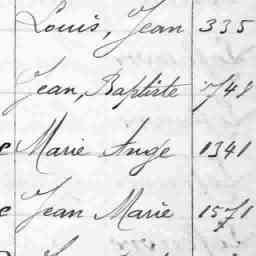 Louis, Jean 335
Jean, Baptiste 748
Marie Ange 1341
Jean Marie 1571